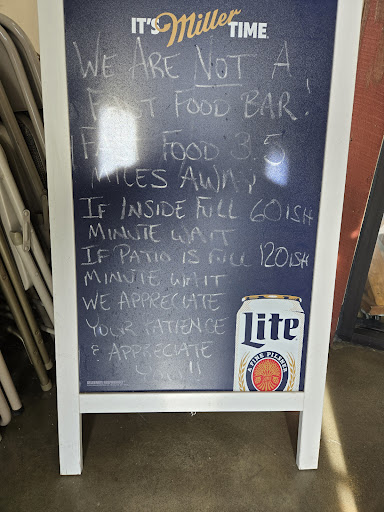 IT'S Miller TIME.
WE ARE NOT A
FAST FOOD BAR!
FAST FOOD 3.5
MILES AWAY
IF INSIDE FULL 60ISH
MINUTE WAIT
IF PATIO IS FULL 120ISH
MINUTE WAIT
WE APPRECIATE
YOUR PATIENCE
& APPRECIATE
!!
Lite
A FINE PILSNER